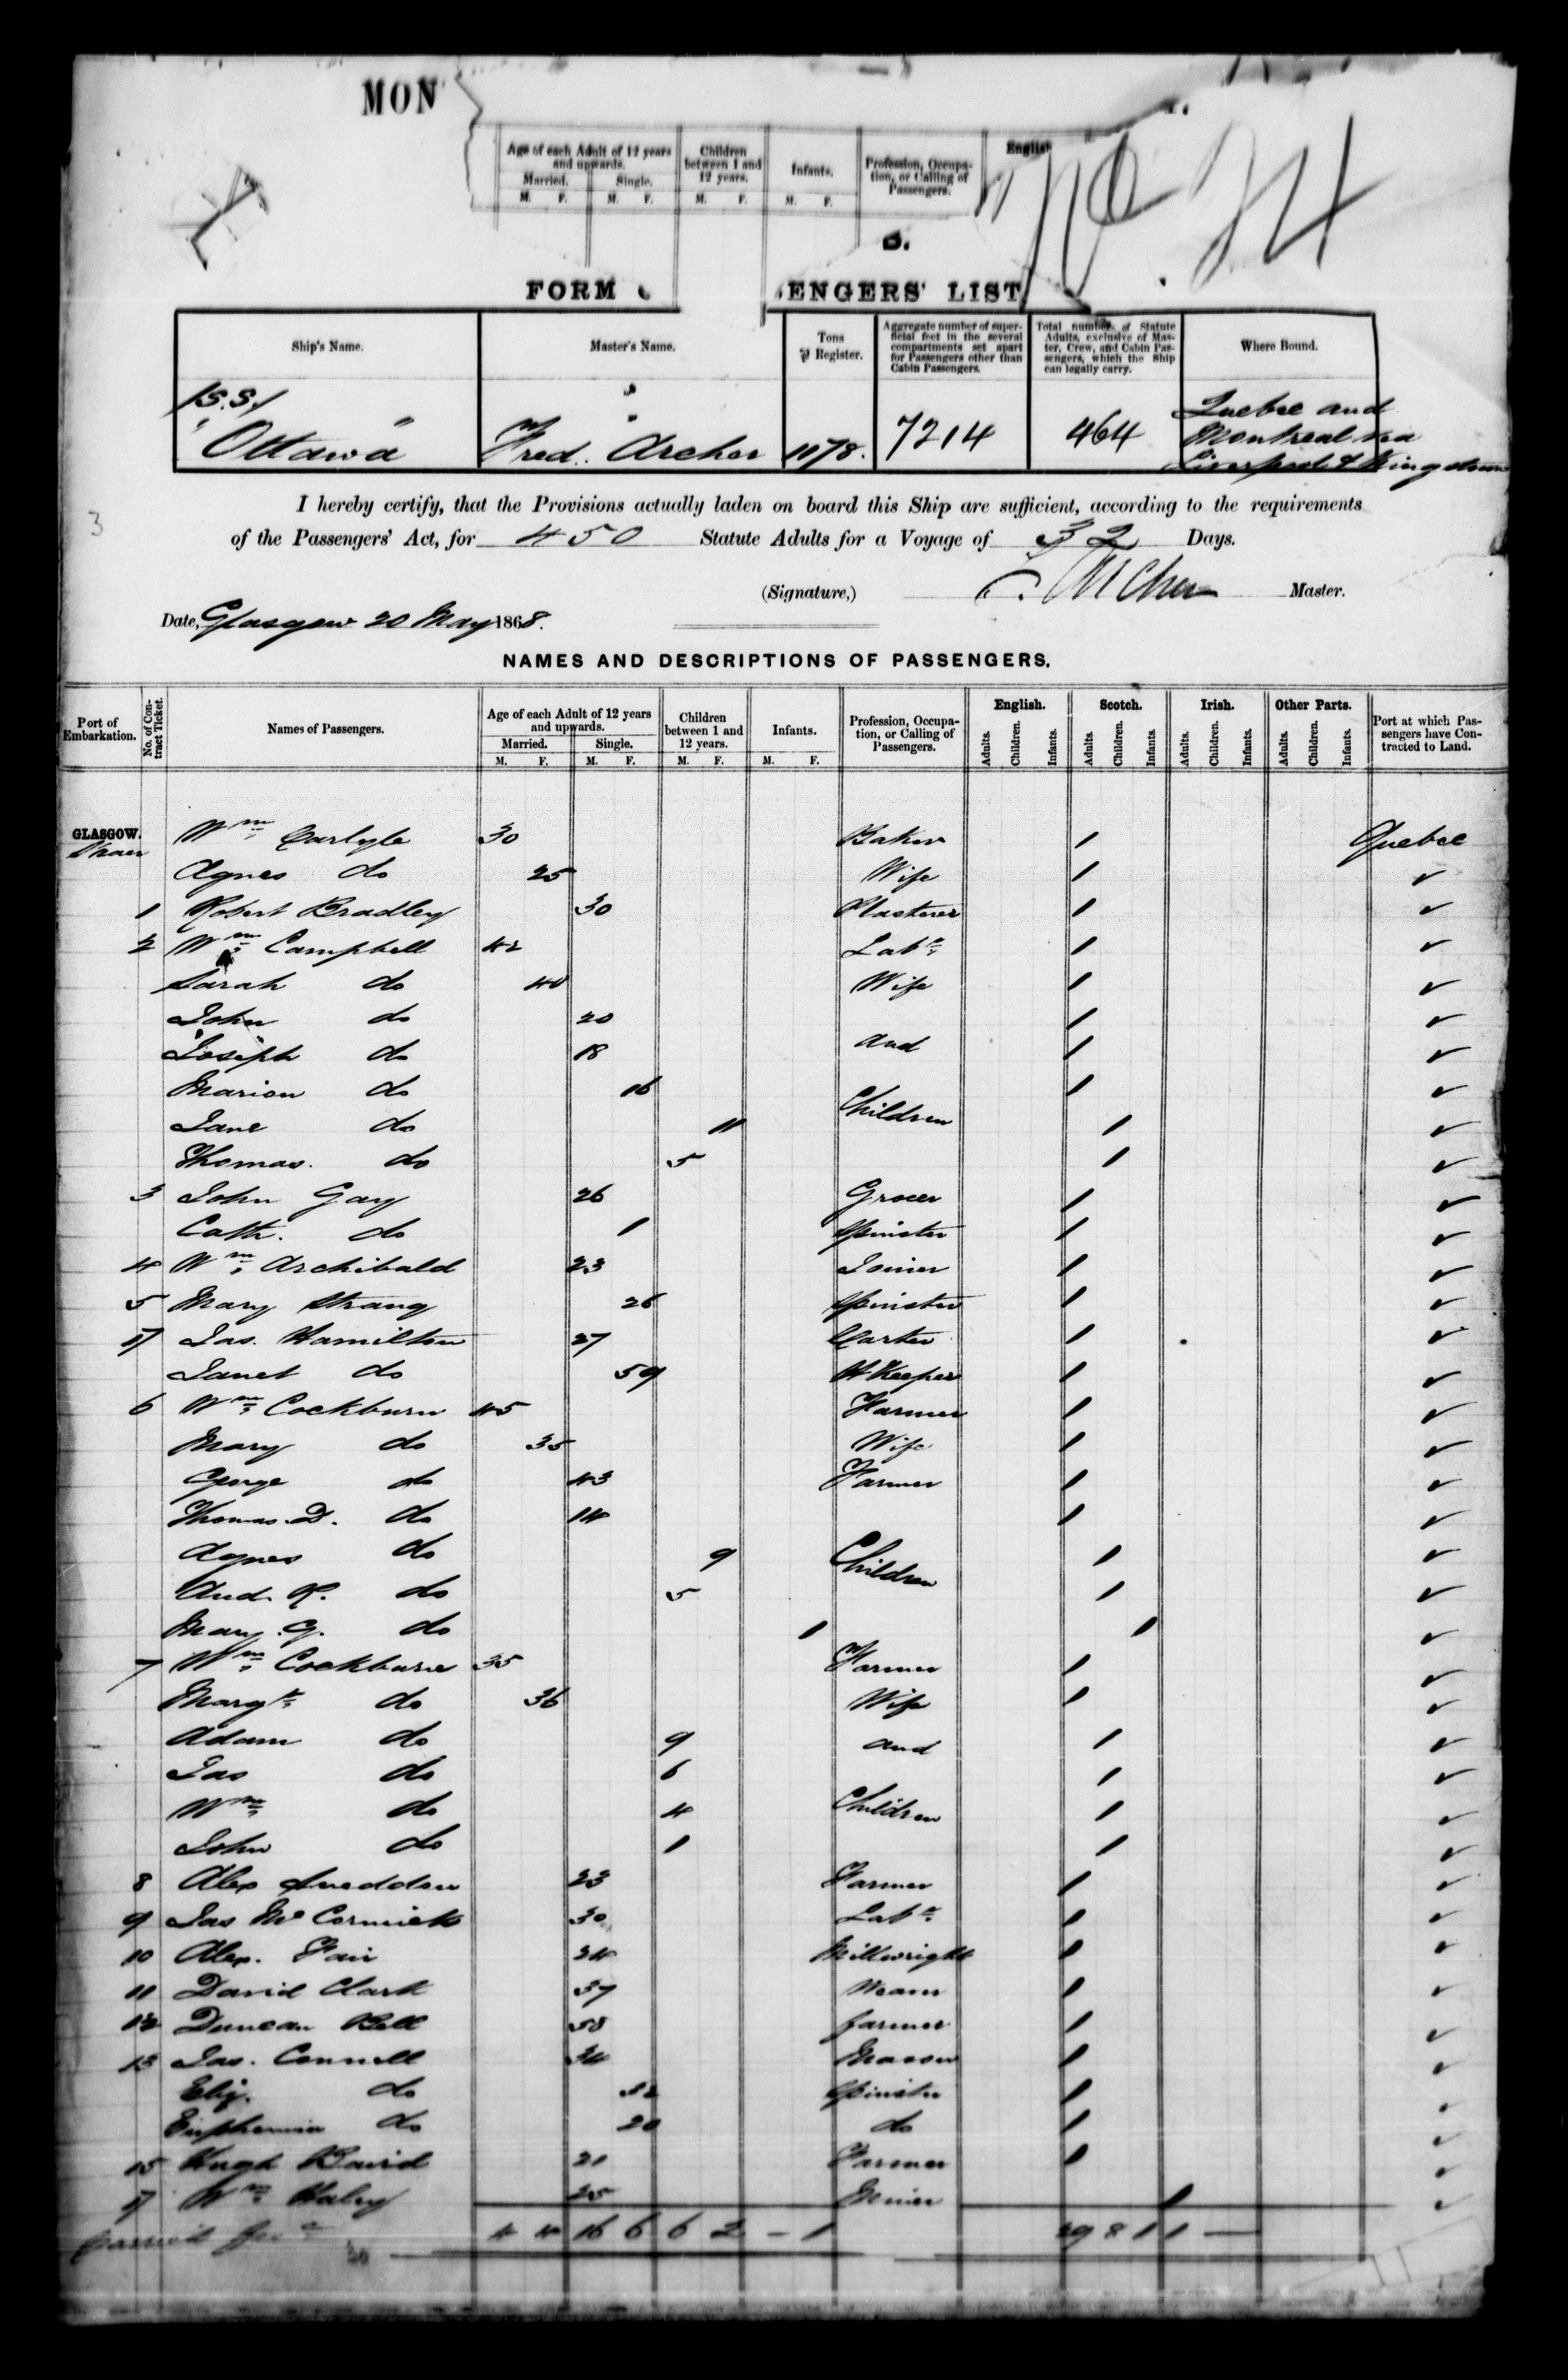 MON
Age of each Adult of 12 years and upwards. Children between 1 and 12 years. Infants. Profession, Occupation, or Calling of Passengers. English
Married. Single.
M. F. M. F. M. F. M. F.
No. 24
FORM ENGERS' LIST
Ship's Name. Master's Name. Tons ⅌ Register. Aggregate number of superficial feet in the several compartments set apart for Passengers other than Cabin Passengers. Total number of Statute Adults, exclusive of Master, Crew, and Cabin Passengers, which the Ship can legally carry. Where Bound.
S.S. "Ottawa" Fred. Archer 1178. 7214 464 Quebec and Montreal via Liverpool & Kingstown
3
I hereby certify, that the Provisions actually laden on board this Ship are sufficient, according to the requirements
of the Passengers' Act, for 450 Statute Adults for a Voyage of 32 Days.
(Signature,) F. Archer Master.
Date, Glasgow 20 May 1868.
NAMES AND DESCRIPTIONS OF PASSENGERS.
Port of Embarkation. No. of Contract Ticket. Names of Passengers. Age of each Adult of 12 years and upwards. Children between 1 and 12 years. Infants. Profession, Occupation, or Calling of Passengers. English. Scotch. Irish. Other Parts. Port at which Passengers have Contracted to Land.
Married. Single. Adults. Children. Infants. Adults. Children. Infants. Adults. Children. Infants. Adults. Children. Infants.
M. F. M. F. M. F. M. F.
GLASGOW. Wm Carlyle 30 Baker 1 Quebec
Agnes do 25 Wife 1 ✓
1 Robert Bradley 30 Plasterer 1 ✓
2 Wm Campbell 42 Labr 1 ✓
Sarah do 40 Wife 1 ✓
John do 20 1 ✓
Joseph do 18 and 1 ✓
Marion do 16 1 ✓
Jane do 11 Children 1 ✓
Thomas. do 5 1 ✓
3 John Gay 26 Grocer 1 ✓
Cath. do 1 Spinster 1 ✓
4 Wm Archibald 23 Joiner 1 ✓
5 Mary Strang 26 Spinster 1 ✓
17 Jas. Hamilton 27 Carter 1 ✓
Janet do 59 H Keeper 1 ✓
6 Wm Cockburn 45 Farmer 1 ✓
Mary do 35 Wife 1 ✓
George do 43 Farmer 1 ✓
Thomas. D. do 14 1 ✓
Agnes do 9 Children 1 ✓
And. R. do 5 1 ✓
Mary. G. do 1 1 ✓
7 Wm Cockburn 35 Farmer 1 ✓
Margt do 36 Wife 1 ✓
Adam do 9 and 1 ✓
Jas do 6 1 ✓
Wm do 4 Children 1 ✓
John do 1 1 ✓
8 Alex Sneddon 23 Farmer 1 ✓
9 Jas McCormick 30 Labr 1 ✓
10 Alex. Fair 24 Millwright 1 ✓
11 David Clark 37 Weaver 1 ✓
12 Duncan Bell 58 farmer 1 ✓
13 Jas. Connell 34 Mason 1 ✓
Eliz. do 32 Spinster 1 ✓
Euphemia do 20 do 1 ✓
15 Hugh Baird 21 Farmer 1 ✓
17 Wm 25 Miner 1 ✓
Carried ford 4 4 16 6 6 2 - 1 29 8 1 1 —